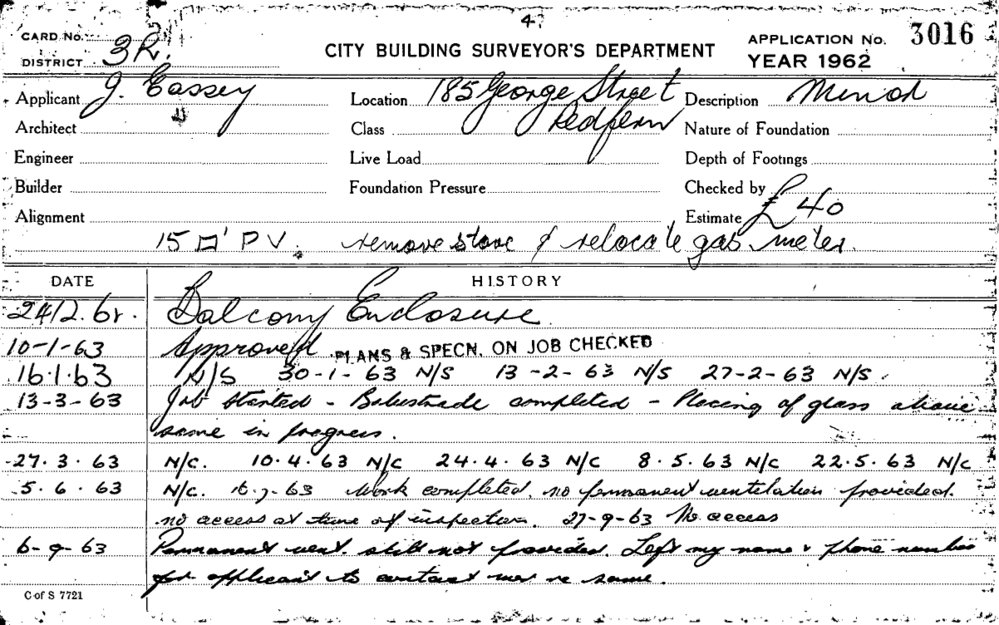 4
CARD No. CITY BUILDING SURVEYOR'S DEPARTMENT APPLICATION No. 3016
DISTRICT 3R. YEAR 1962
Applicant J. Cassey Location 185 George Street Description Minor
Architect Class Redfern Nature of Foundation
Engineer Live Load Depth of Footings
Builder Foundation Pressure Checked by
Alignment Estimate £40
15 □' P V. remove stove & relocate gas meter.
DATE HISTORY
24.12.62. Balcony Enclosure.
10-1-63 Approved PLANS & SPECN. ON JOB CHECKED
16.1.63 N/S 30-1-63 N/S 13-2-63 N/S 27-2-63 N/S.
13-3-63 Job started - Balustrade completed - Placing of glass above
same in progress.
27.3.63 N/C. 10.4.63 N/C 24.4.63 N/C 8.5.63 N/C 22.5.63 N/C
5.6.63 N/C. 16.7.63 Work completed, no permanent ventilation provided.
no access at time of inspection. 27-9-63 No access
6-9-63 Permanent vent. still not provided. Left my name & phone number
for applicant to contact me re same.
C of S 7721